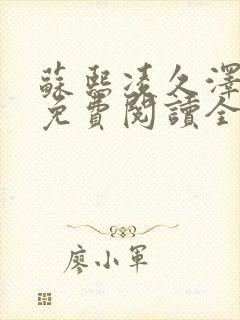 蘇熙凌久澤
免費閱讀全
廖小軍